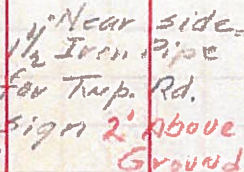 Near side
1½ Iron Pipe
for Twp. Rd.
sign 2' Above
Ground